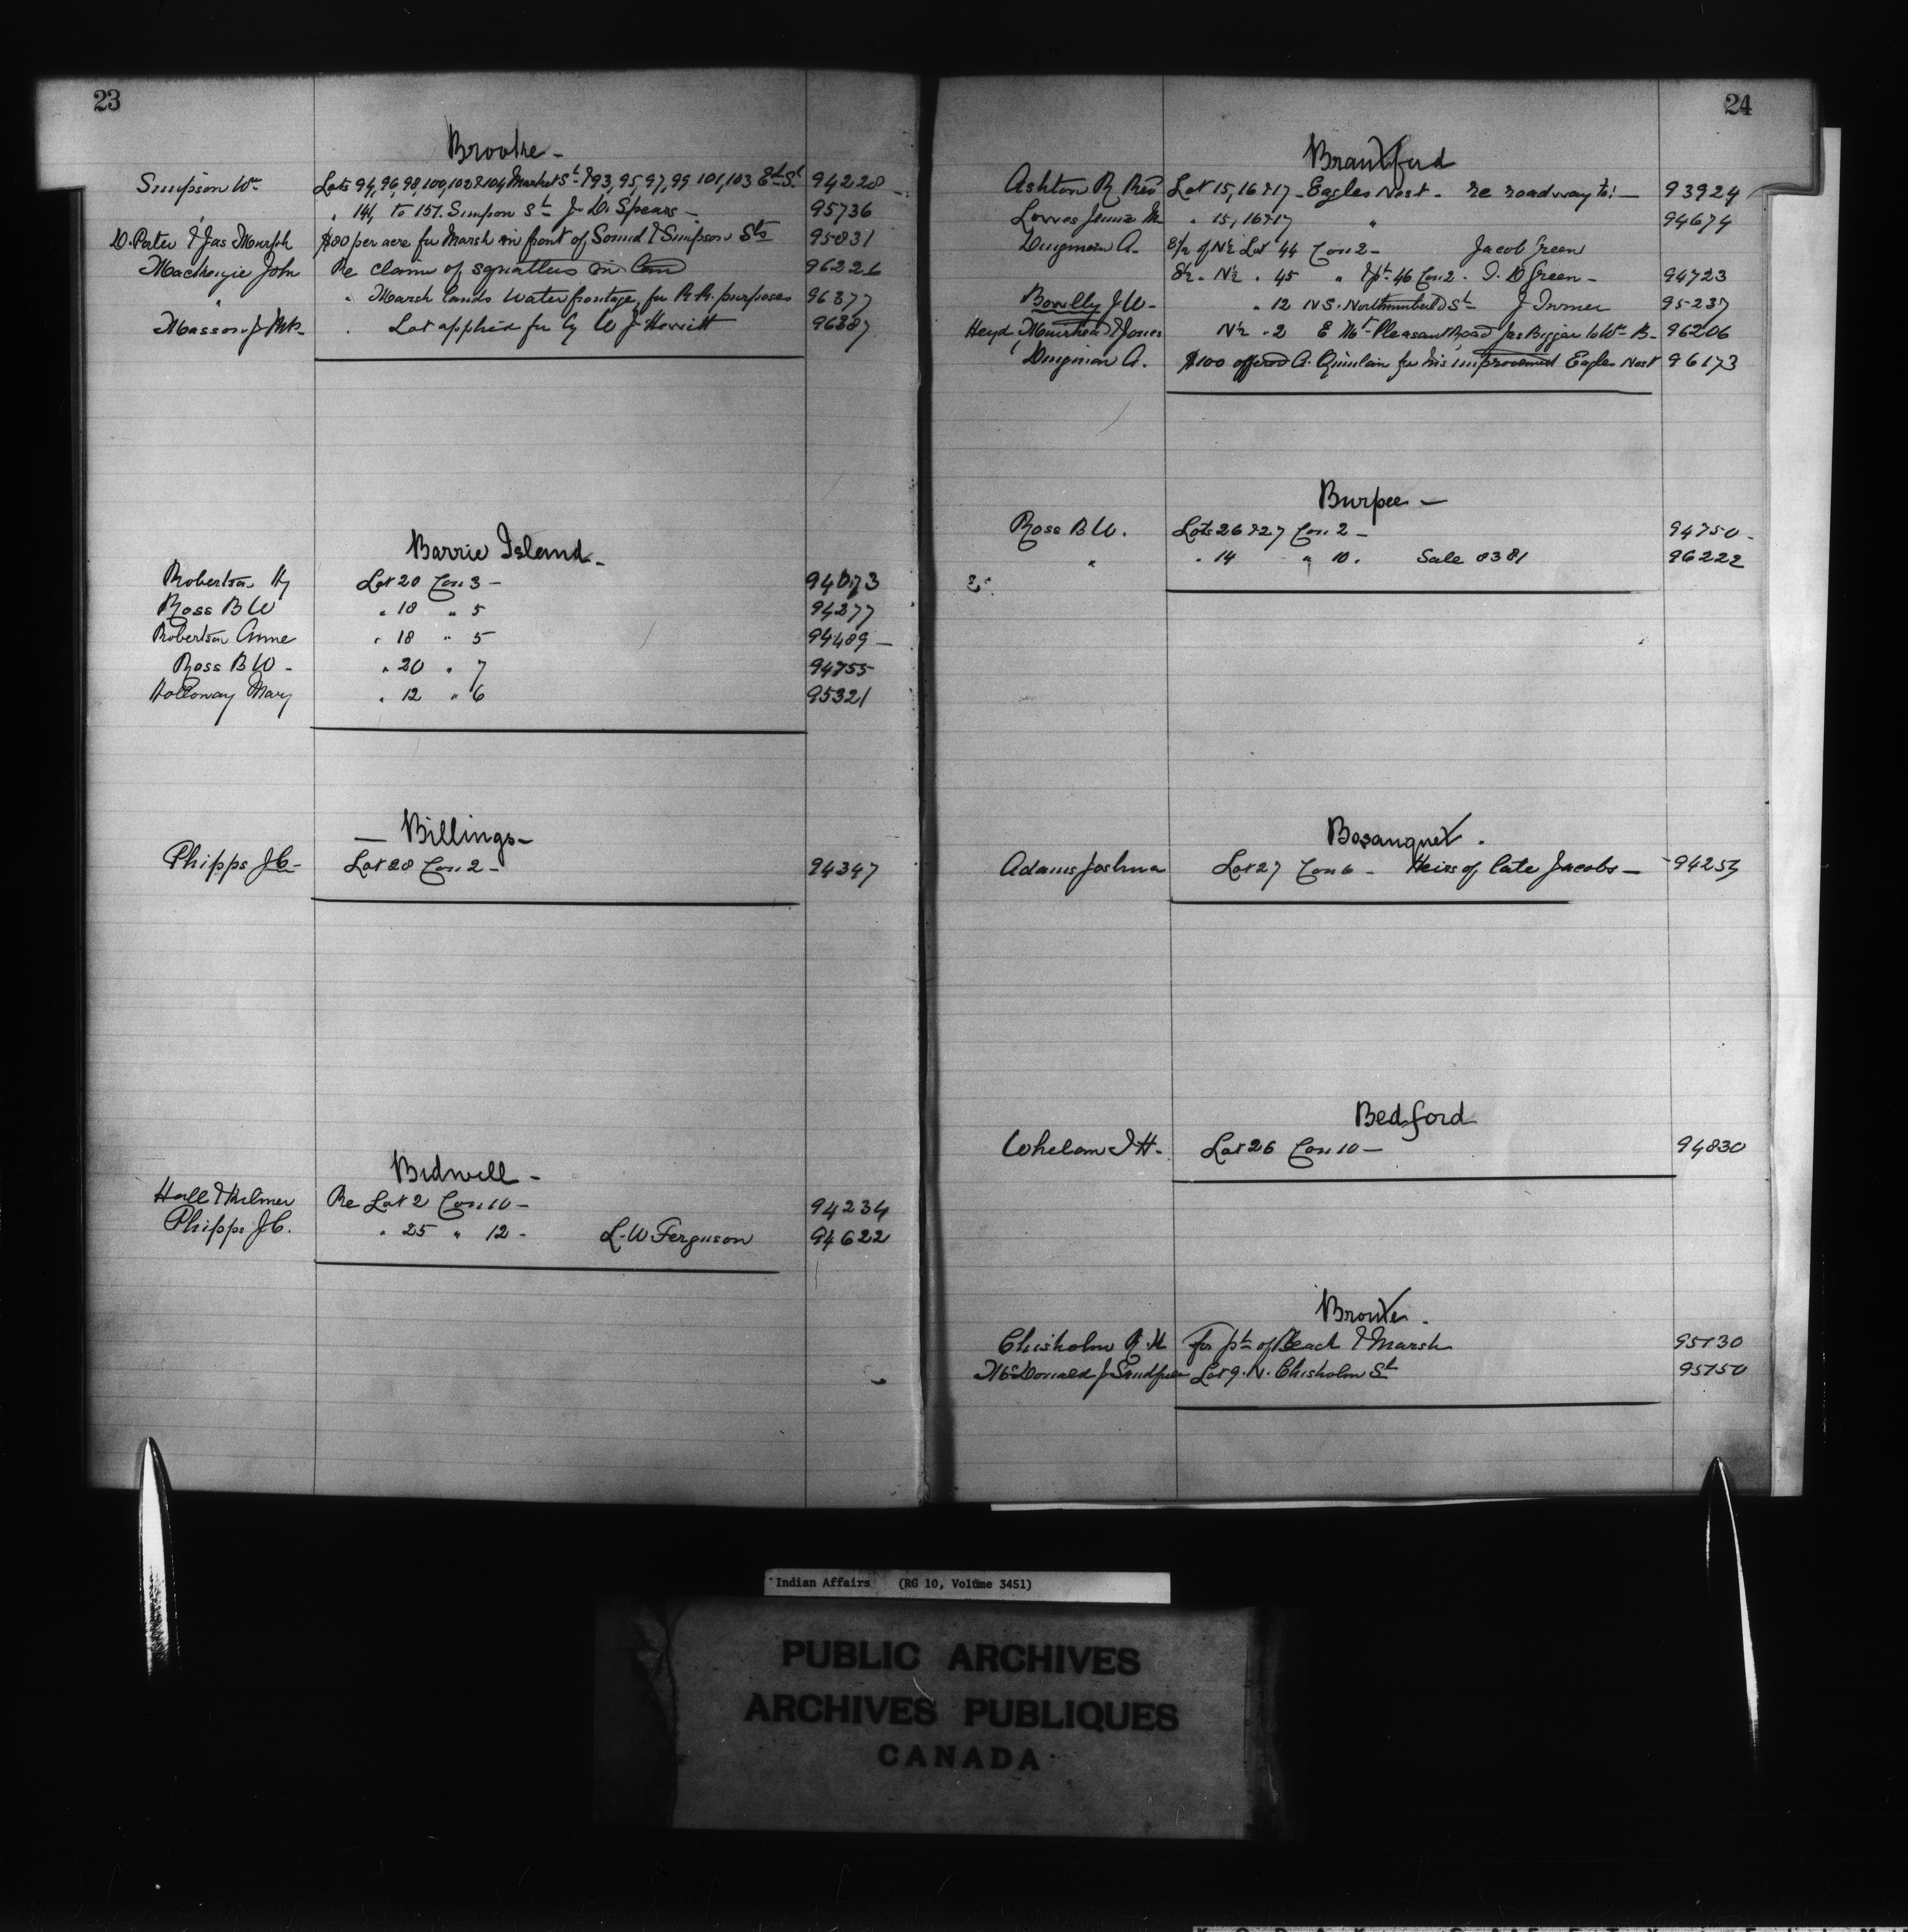 23
Brooke -
Simpson Wm Lots 94, 96, 98, 100, 102 & 104 Market St & 93, 95, 97, 99 101, 103 Ed St 94228 -
" " 141, to 151. Simpson St J. D. Spears - 95736
D. Porter & Jas Murph $80 per acre for Marsh in front of Sound & Simpson Sts 95831
Mackenzie John Re claim of squatters on 96226
" " Marsh lands Water frontage, for R.R. purposes 96377
Masson J MP. " Lot applied for by W J Hewitt 96387
Barrie Island -
Robertson Hy Lot 20 Con 3 - 94073
Ross B W " 18 " 5 94277
Robertson Anne " 18 " 5 94489 -
Ross B W - " 20 " 7 94755
Holloway Mary " 12 " 6 95321
- Billings -
Phipps J C - Lot 28 Con 2 - 94347
Bidwell -
Hall & Kilmer Re Lot 2 Con 10 - 94234
Phipps J C. " 25 " 12 - L. W Ferguson 94622
24
Brantford
Ashton R Rev Lot 15, 16 & 17 - Eagles Nest - re roadway to! - 93924
Jennie M " 15, 16 & 17 " 94674
Dingman A. S½ of N½ Lot 44 Con 2 - Jacob Green
S½ - N½ " 45 " & pt 46 Con 2 - I. D Green - 94723
J W - " 12 N S. Northumberld St J Inmer 95237
Heyd, Muirhead & Jones N½ - 2 E Mt Pleasant Road Jas Biggar to Wm B - 96206
Dingman A. $100 offered A. Quinlan for his improvement Eagles Nest 96173
Burpee -
Ross B W. Lots 26 & 27 Con 2 - 94750 -
" " 14 " 10. Sale 8381 96222
Bosanquet.
Adams Joshua Lot 27 Con 6 - Heirs of late Jacobs - 94254
Bedford
Whelan J H. Lot 26 Con 10 - 94830
Bronte.
Chisholm R. K For pt of Beach & Marsh 95130
McDonald J Lot 9. N. Chisholm St 95150
Indian Affairs (RG 10, Volume 3451)
PUBLIC ARCHIVES
ARCHIVES PUBLIQUES
CANADA